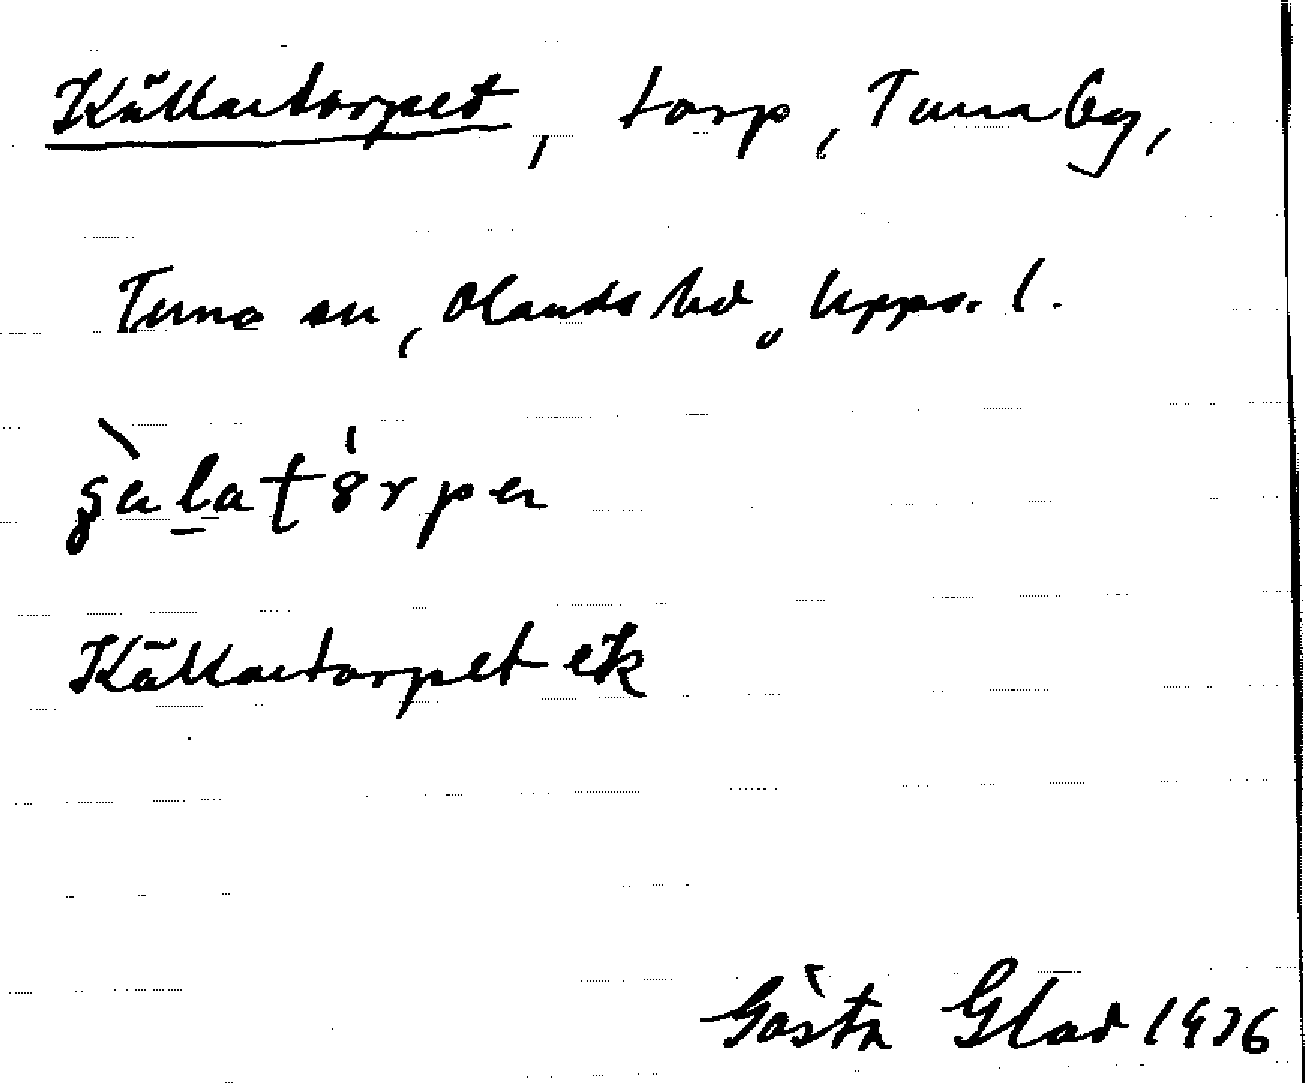 Källartorpet, torp, Tunaby,
Tuna sn, Olands hd, Upps. l.
Källartorpet ek
Gösta Glad 1936